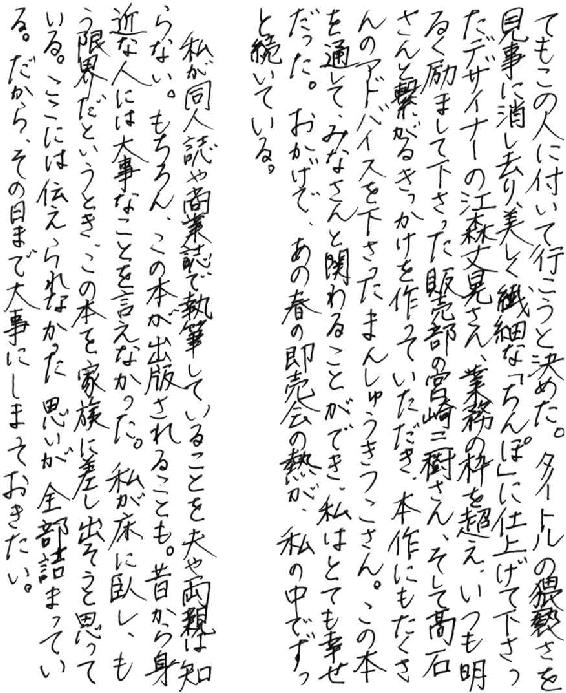 てもこの人に付いて行こうと決めた。タイトルの猥褻さを
見事に消し去り、美しく繊細な「ちんぽ」に仕上げて下さっ
たデザイナーの江森丈晃さん、業務の枠を超え、いつも明
るく励まして下さった販売部の宮崎三樹さん、そして高石
さんと繋がるきっかけを作っていただき、本作にもたくさ
んのアドバイスを下さったまんしゅうきつこさん。この本
を通して、みなさんと関わることができ、私はとても幸せ
だった。おかげで、あの春の即売会の熱が、私の中でずっ
と続いている。
私が同人誌や商業誌で執筆していることを夫や両親は知
らない。もちろん、この本が出版されることも。昔から身
近な人には大事なことを言えなかった。私が床に臥し、も
う限界だというとき、この本を家族に差し出そうと思って
いる。ここには伝えられなかった思いが全部詰まってい
る。だから、その日まで大事にしまっておきたい。